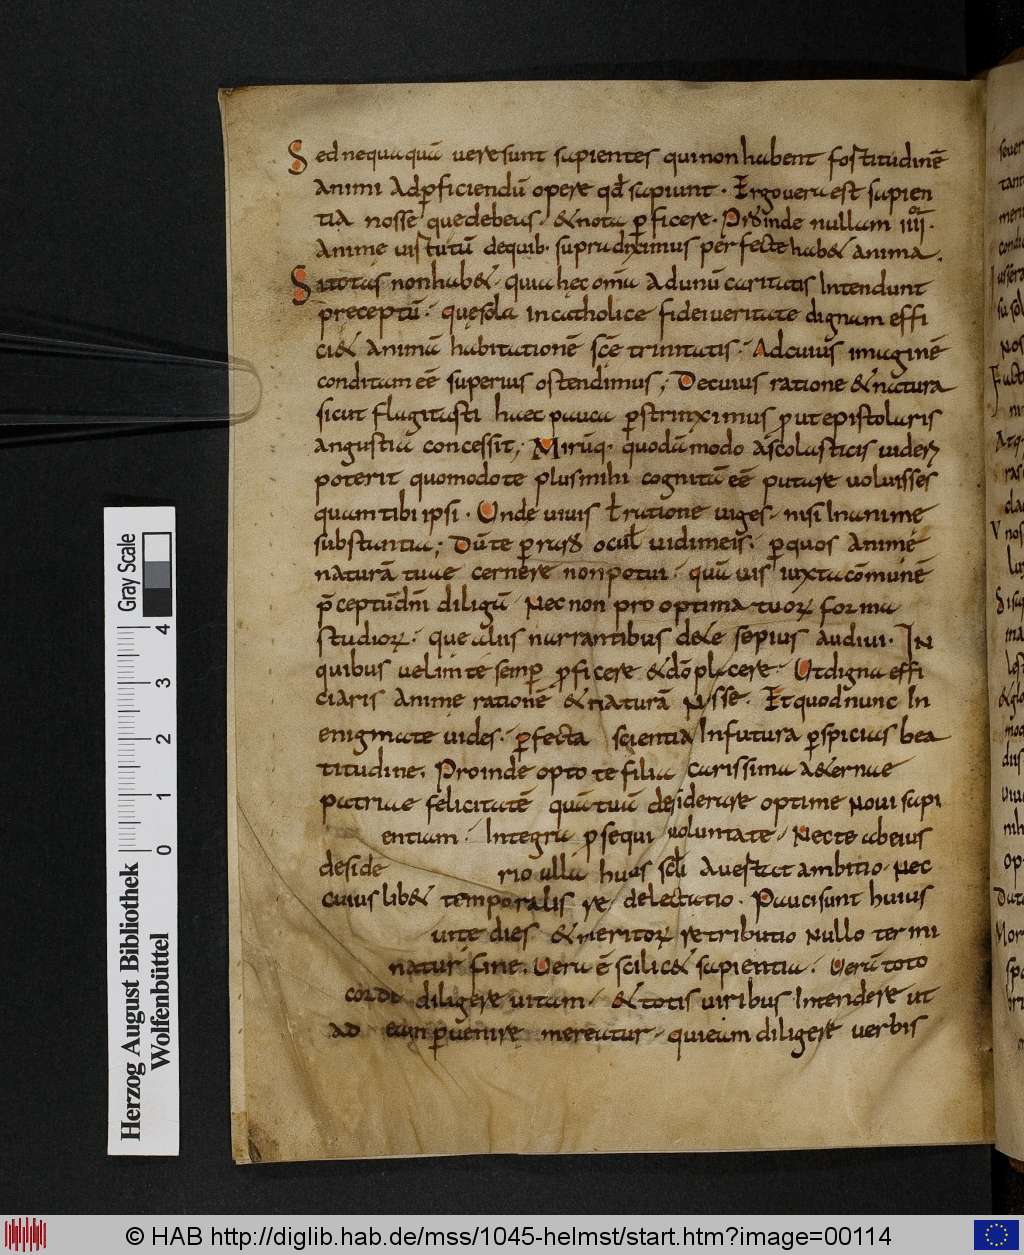 Sed nequaquā vere sunt sapientes qui non habent fortitudinē
animi ad ꝑficiendū opere qđ sapiunt. Ergo vera est sapien
tia nosse quę debeas. & nota ꝑficere. Proinde nullam iiiior.
Animę virtutū de quib. supra diximus perfecte hab& anima.
Si totas non hab&. quia hęc omīa ad unū caritatis Intendunt
preceptū. quę sola in catholicę fidei veritate dignam effi
ci& animā habitationē scę trinitatis. Ad cuius imaginē
conditam eē superius ostendimus; De cuius ratione & natura
sicut flagitasti haec pauca ꝑstrinximus prout epistolaris
angustia concessit; Mirūq. quodāmodo a scolasticis videri
poterit quomodo te plus mihi cognitū eē putare voluisses
quam tibi ipsi. Unde vivis ł ratione viges. nisi In animę
substantia; Dū te oculi vidimeis. ꝑ quos animę
naturā tuae cernere non potui. quā vis iuxta cōmunē
p̄ceptū dn̄i diligā. Nec non pro optima tuoꝝ forma
studioꝝ. que aliis narrantibus de te sepius audivi. In
quibus velim te semꝑ ꝓficere & dō placere. Ut digna effi
ciaris animę rationē & naturā nosse. Et quod nunc In
enigmate vides. ꝑfecta scientia In futura ꝑspicias bea
titudine. Proinde opto te filia carissima aeternae
patriae felicitatē quā tuā desiderare optime novi sapi
entiam. Integra ꝓsequi voluntate. Nec te ab eius
deside rio ulla huius scli avertat ambitio. Nec
cuius lib& temporalis re delectatio. Pauci sunt huius
vite dies & meritoꝝ retributio nullo termi
natur fine. Vera ē scilic& sapientia. Verū toto
corde diligere vitam. & totis viribus Intendere ut
ad eam ꝑvenire mereatur. qui eam diligere verbis
Gray Scale
0 1 2 3 4
Herzog August Bibliothek
Wolfenbüttel
© HAB http://diglib.hab.de/mss/1045-helmst/start.htm?image=00114